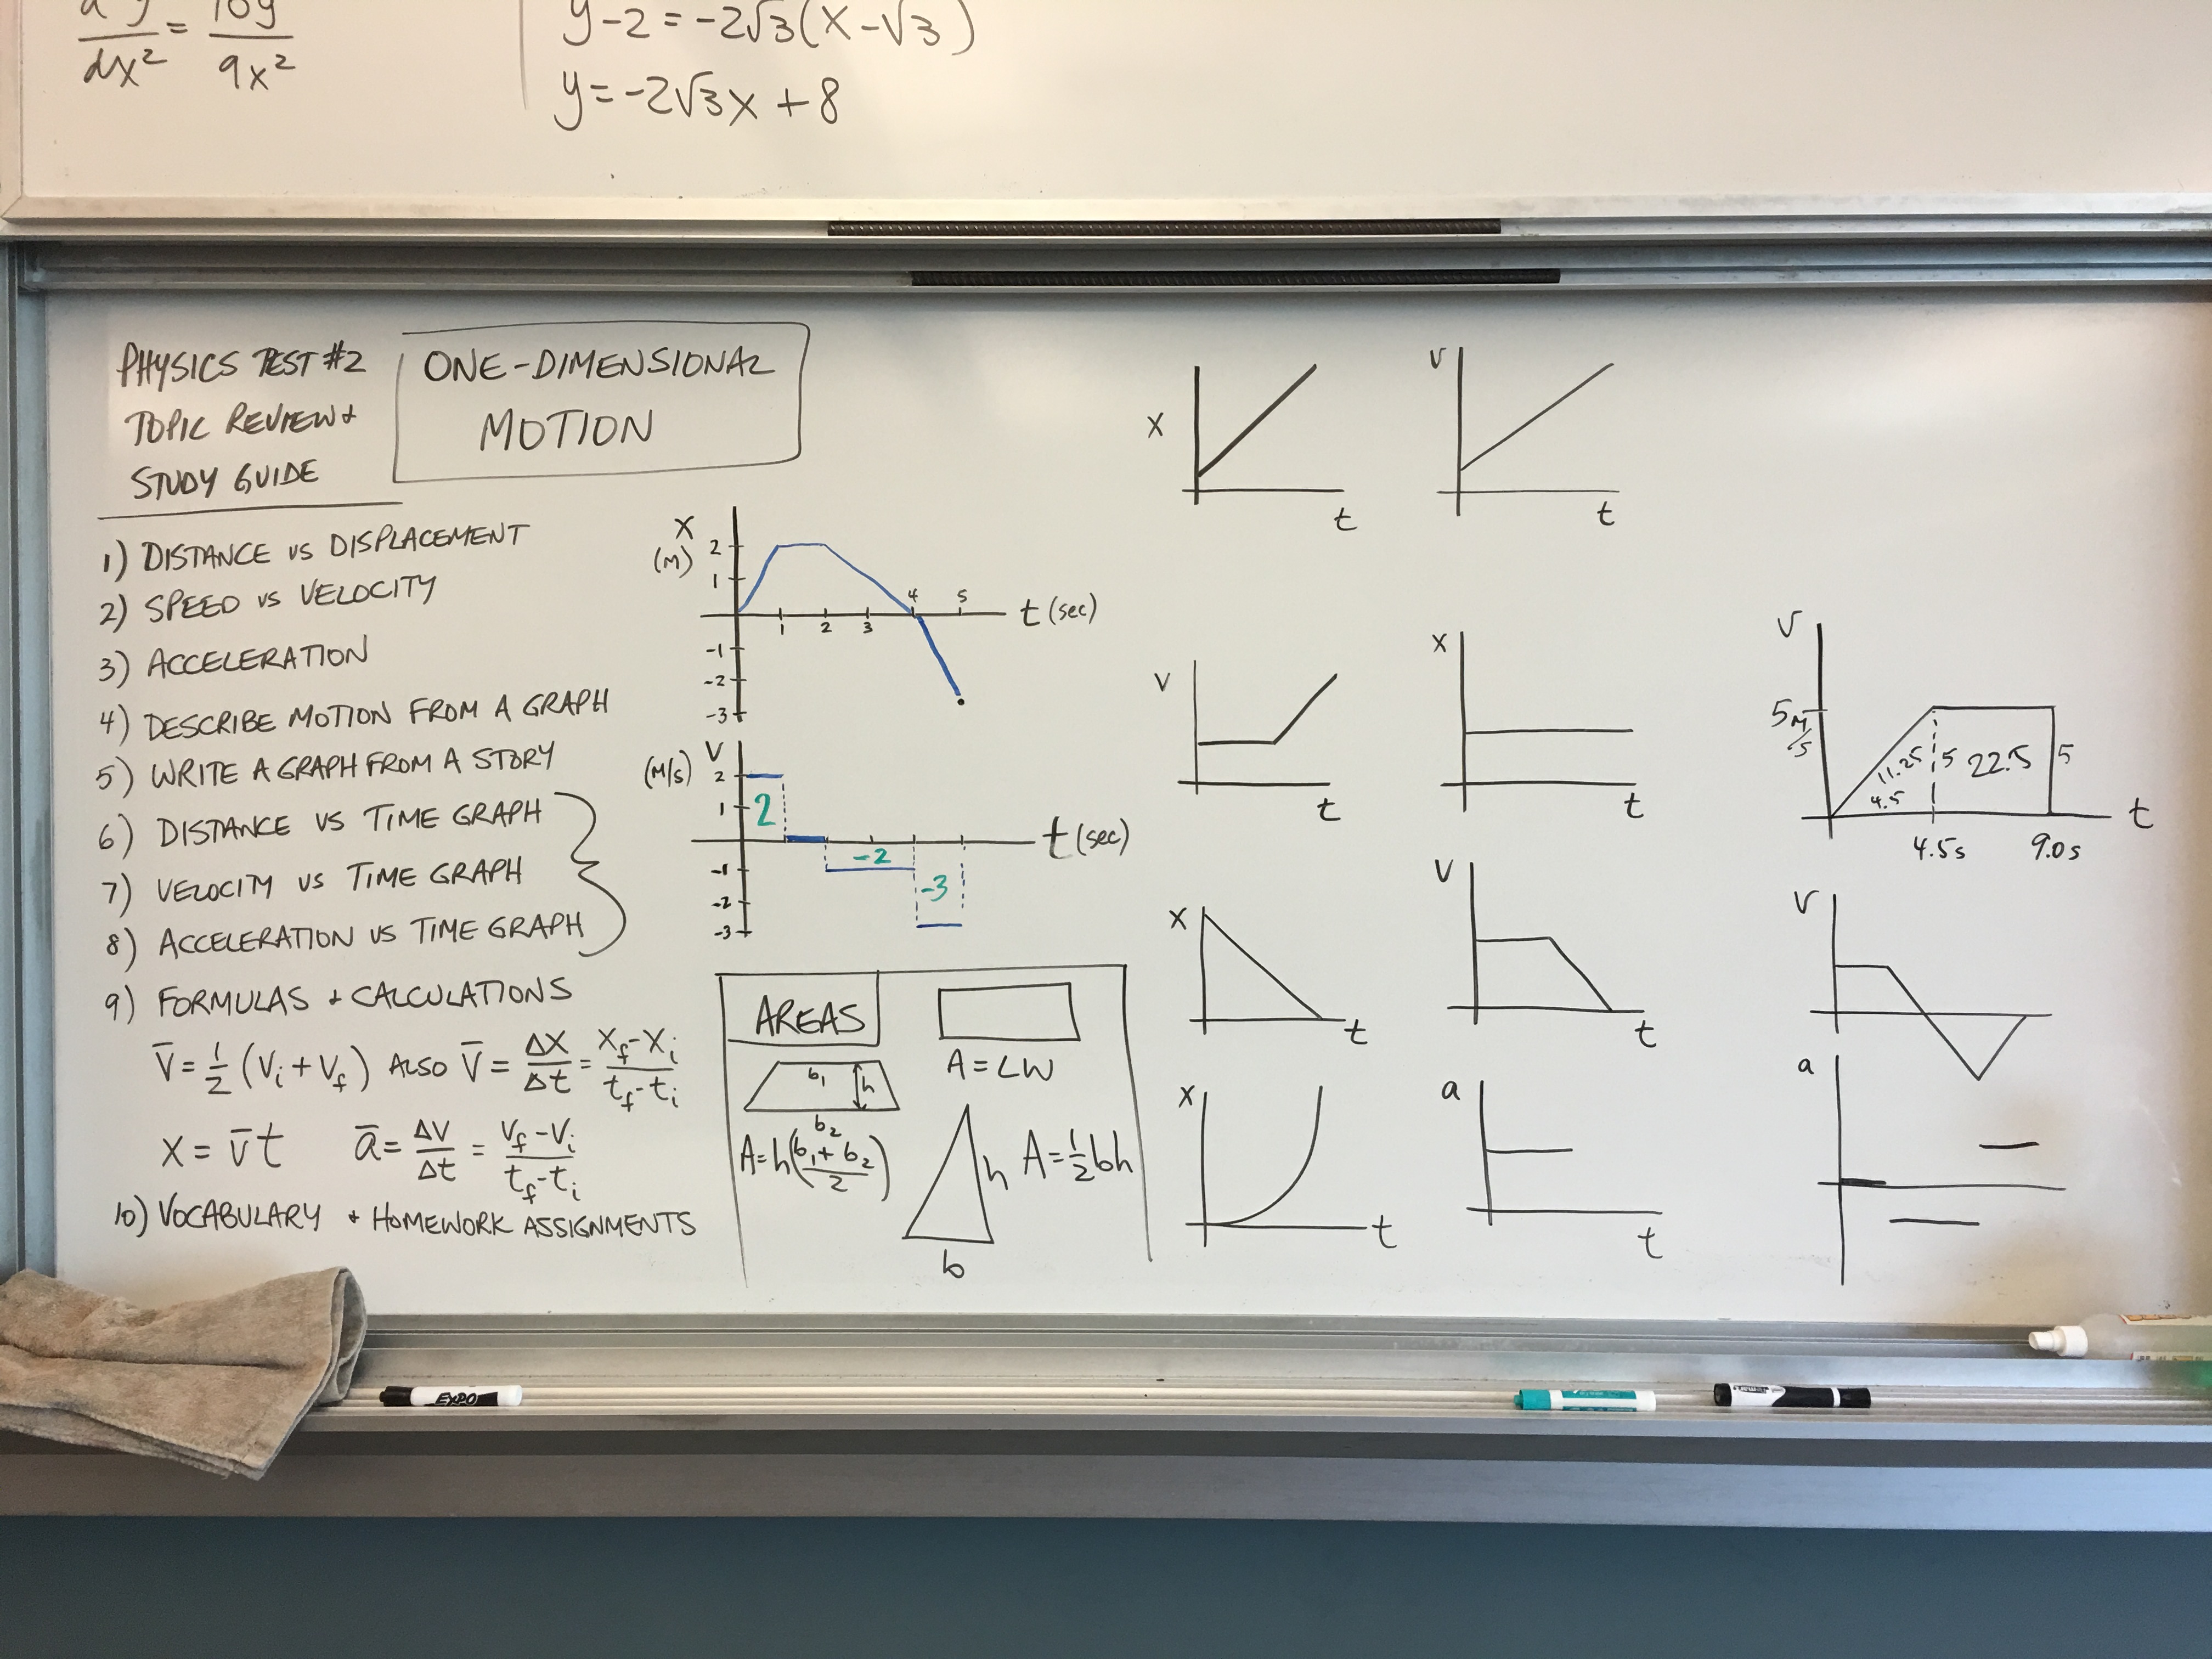 dx² = 9x²
y-2 = -2√3(x-√3)
y = -2√3x + 8
PHYSICS TEST #2
TOPIC REVIEW +
STUDY GUIDE
ONE-DIMENSIONAL
MOTION
1) DISTANCE VS DISPLACEMENT
2) SPEED VS VELOCITY
3) ACCELERATION
4) DESCRIBE MOTION FROM A GRAPH
5) WRITE A GRAPH FROM A STORY
6) DISTANCE VS TIME GRAPH
7) VELOCITY VS TIME GRAPH
8) ACCELERATION VS TIME GRAPH
9) FORMULAS + CALCULATIONS
V̄ = 1/2 (Vi + Vf) ALSO V̄ = ΔX/Δt = Xf-Xi/tf-ti
X = v̄t ā = ΔV/Δt = Vf-Vi/tf-ti
10) VOCABULARY + HOMEWORK ASSIGNMENTS
X
(M)
2
1
-1
-2
-3
1 2 3 4 5
t (sec)
V
(M/s)
2
1
-1
-2
-3
2
-2
-3
t (sec)
AREAS
A = LW
b1
h
b2
A = h(b1 + b2/2)
h
b
A = 1/2 bh
X
t
V
t
V
t
X
t
X
t
V
t
X
t
a
t
V
5 M/s
11.25
4.5
5
22.5
5
t
4.5s
9.0s
V
a
EXPO